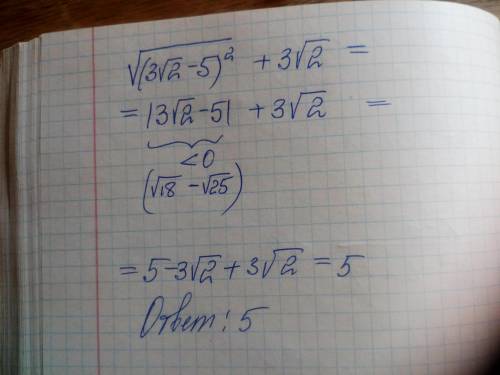 √(3√2 - 5)² + 3√2 =
= |3√2 - 5| + 3√2 =
<0
(√18 - √25)
= 5 - 3√2 + 3√2 = 5
Ответ: 5